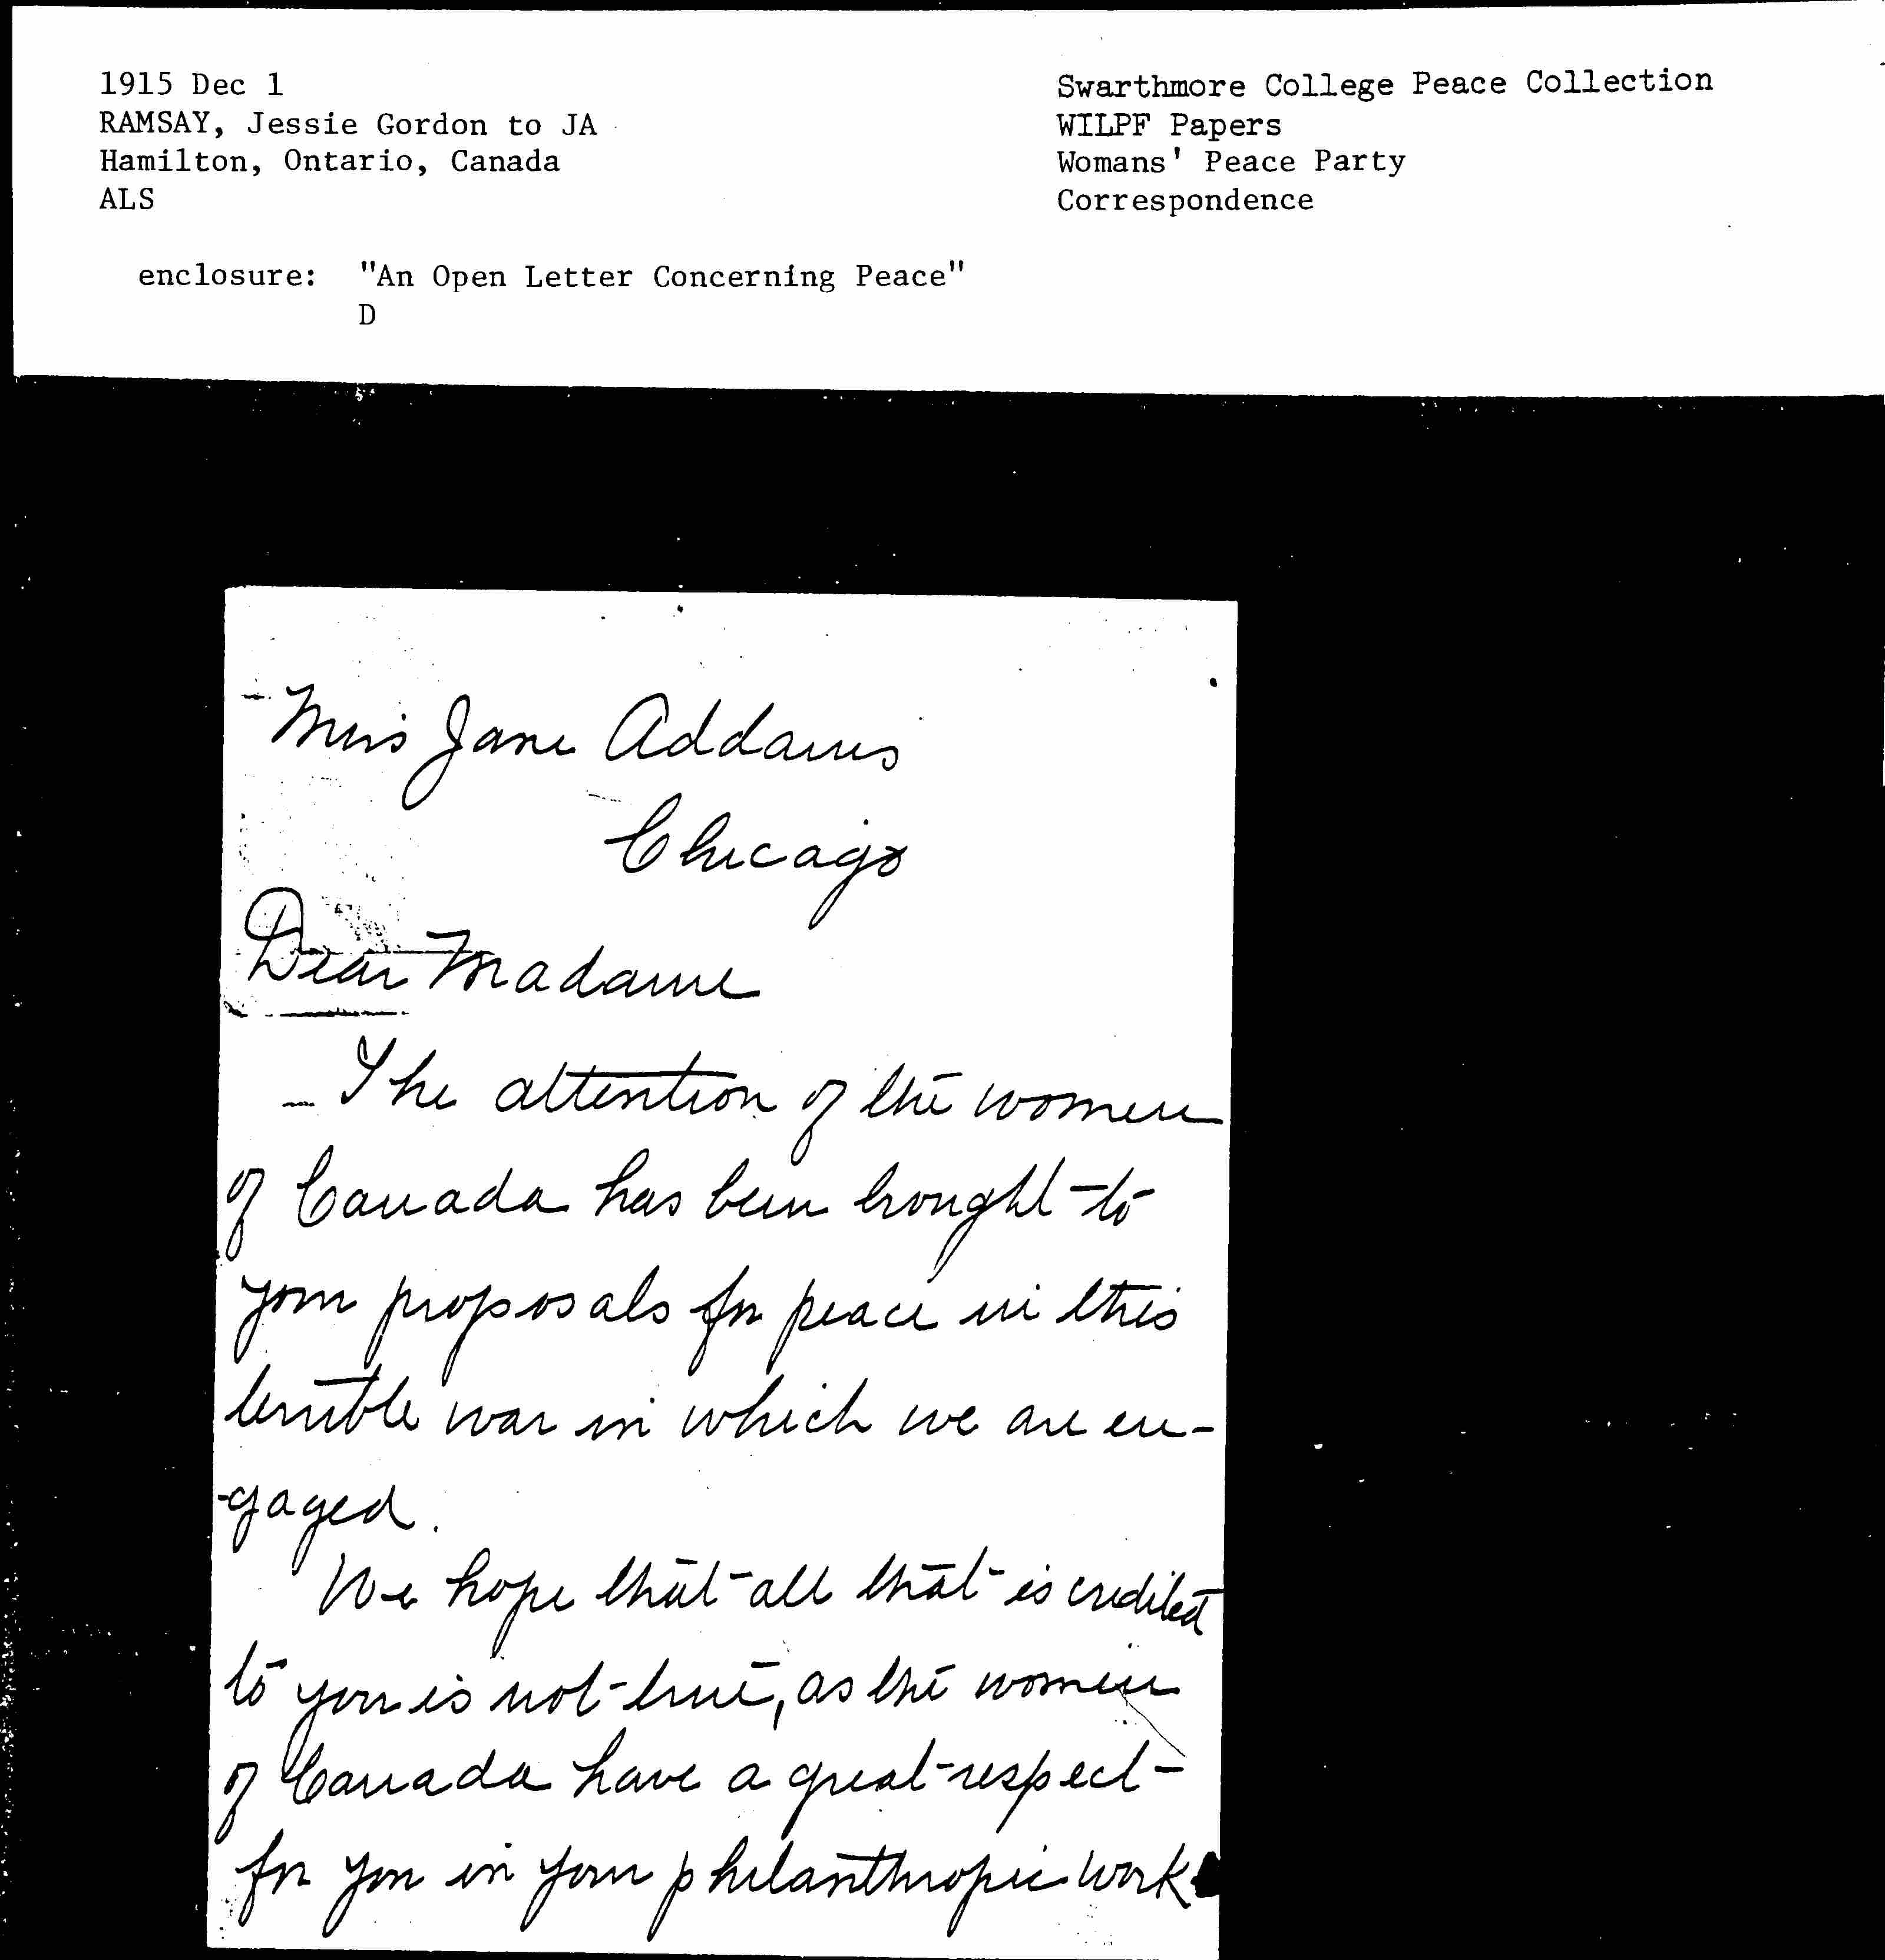 1915 Dec 1
RAMSAY, Jessie Gordon to JA
Hamilton, Ontario, Canada
ALS
enclosure: "An Open Letter Concerning Peace"
D
Swarthmore College Peace Collection
WILPF Papers
Womans' Peace Party
Correspondence
Miss Jane Addams
Chicago
Dear Madame
The attention of the women
of Canada has been brought to
your proposals for peace in this
terrible war in which we are en-
-gaged.
We hope that all that is credited
to you is not true, as the women
of Canada have a great respect
for you in your philanthropic work